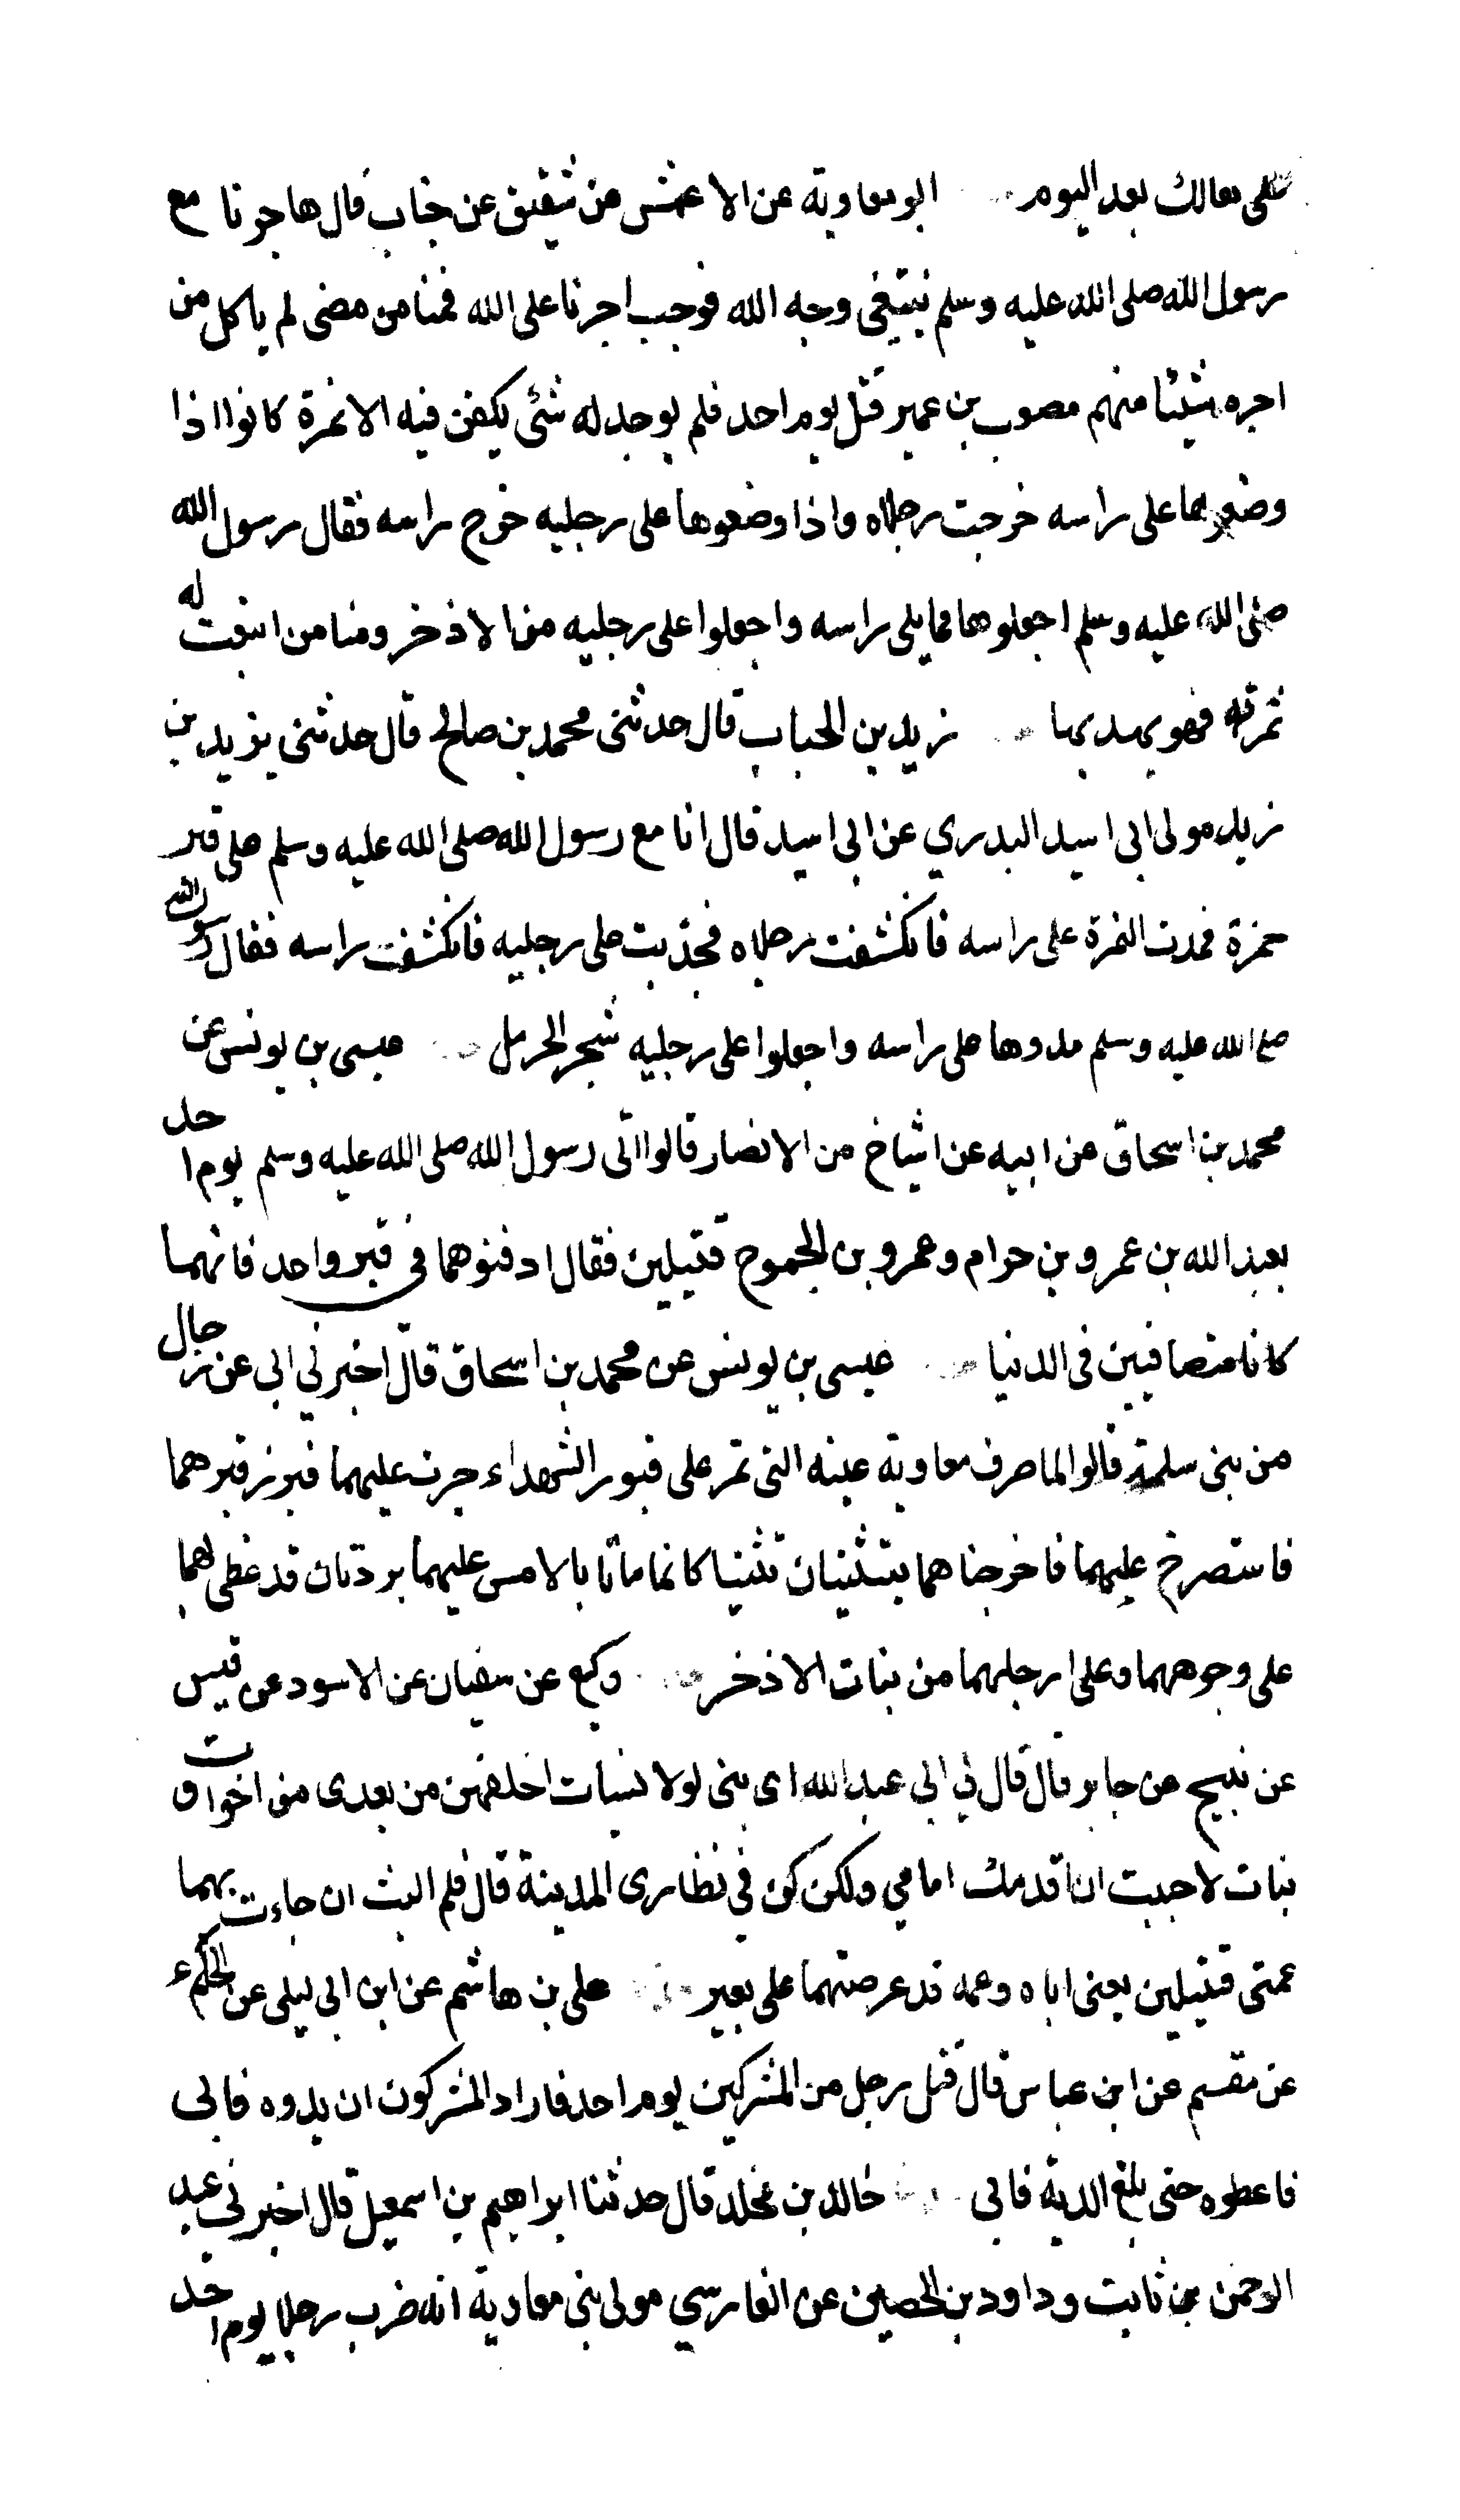 على مالك بعد اليوم ابو معاوية عن الاعمش عن شقيق عن خباب قال هاجرنا مع
رسول الله صلى الله عليه وسلم نبتغي وجه الله فوجب اجرنا على الله فمنا من مضى لم ياكل من
اجره شيئا منهم مصعب بن عمير قتل يوم احد فلم يوجد له شئ يكفن فيه الا نمرة كانوا اذا
وضعوها على راسه خرجت رجلاه واذا وضعوها على رجليه خرج راسه فقال رسول الله
صلى الله عليه وسلم اجعلوها مما يلى راسه واجعلوا على رجليه من الاذخر ومنا من اينعت له
ثمرته فهو يهدبها زيد بن الحباب قال حدثنى محمد بن صالح قال حدثني يزيد بن
زيد مولى ابى اسيد البدري عن ابى اسيد قال انا مع رسول الله صلى الله عليه وسلم على قبر
حمزة فمدت النمرة على راسه فانكشفت رجلاه فجذبت على رجليه فانكشفت راسه فقال رسول الله
صلى الله عليه وسلم مدوها على راسه واجعلوا على رجليه شجر الحرمل عيسى بن يونس عن
محمد بن اسحاق عن ابيه عن اشياخ من الانصار قالوا اتى رسول الله صلى الله عليه وسلم يوم احد
بعبد الله بن عمرو بن حرام وعمرو بن الجموح قتيلين فقال ادفنوهما في قبر واحد فانهما
كانا متصافيين فى الدنيا عيسى بن يونس عن محمد بن اسحاق قال اخبرني ابى عن رجال
من بنى سلمة قالوا لما صرف معاوية عينه التى تمر على قبور الشهداء جرت عليهما فبرز قبرهما
فاستصرخ عليهما فاخرجناهما يتثنيان تثنيا كانما ماتا بالامس عليهما بردتان قد غطى لهما بها
على وجوههما وعلى ارجلهما من نبات الاذخر وكيع عن سفيان عن الاسود عن قيس
عن نبيح عن جابر قال قال لي ابي عبد الله اى بنى لولا نسيات اخلفهن من بعدى من اخوات و
بنات لاحببت ان اقدمك امامي ولكن كن في نظارى المدينة قال فلم البث ان جاءت بهما
عمتى قتيلين يعنى اباه وعمه قد عرضتهما على بعير على بن هاشم عن ابن ابي ليلى عن الحكم
عن مقسم عن ابن عباس قال قتل رجل من المشركين يوم احد فاراد المشركون ان يدوه فابى
فاعطوه حتى بلغ الدية فابى خالد بن مخلد قال حدثنا ابراهيم بن اسمعيل قال اخبرني عبد
الرحمن بن ثابت وداود بن الحصين عن الفارسي مولى بنى معاوية انه ضرب رجلا يوم احد